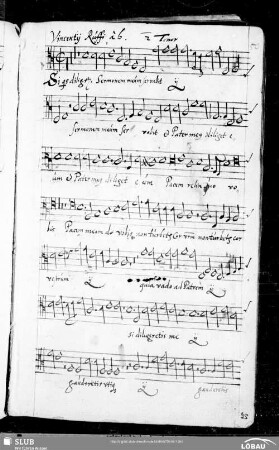 Vincentij Ruffi à 6. 2 Tenor
Si qs diligit Sermonem meum servabit
sermonem meum ser vabit & Pater meus diliget e,
um & Pater meus diliget e um Pacem relinquo vo,
bis Pacem meam do vobis non turbetur Cor vrm non turbetur cor
vestrum quia vado ad Patrem
si diligeretis me
gauderetis utiq gauderetis
SLUB
LOBAU